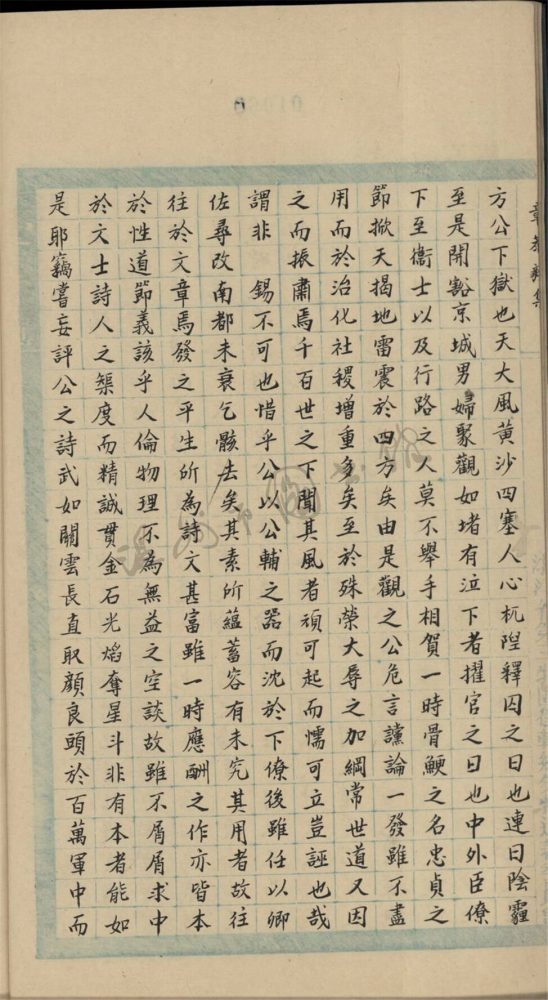 方公下獄也天大風黃沙四塞人心杌隉釋囚之日也連日陰霾
至是開豁京城男婦聚觀如堵有泣下者擢官之日也中外臣僚
下至衞士以及行路之人莫不舉手相賀一時骨鯁之名忠貞之
節掀天揭地雷震於四方矣由是觀之公危言讜論一發雖不盡
用而於治化社稷增重多矣至於殊榮大辱之加綱常世道又因
之而振肅焉千百世之下聞其風者頑可起而懦可立豈誣也哉
謂非 錫不可也惜乎公以公輔之器而沈於下僚後雖任以卿
佐尋改南都未衰乞骸去矣其素所蘊蓄容有未究其用者故往
往於文章焉發之平生所為詩文甚富雖一時應酬之作亦皆本
於性道節義該乎人倫物理不為無益之空談故雖不屑屑求中
於文士詩人之榘度而精誠貫金石光焰奪星斗非有本者能如
是耶竊嘗妄評公之詩武如關雲長直取顏良頭於百萬軍中而